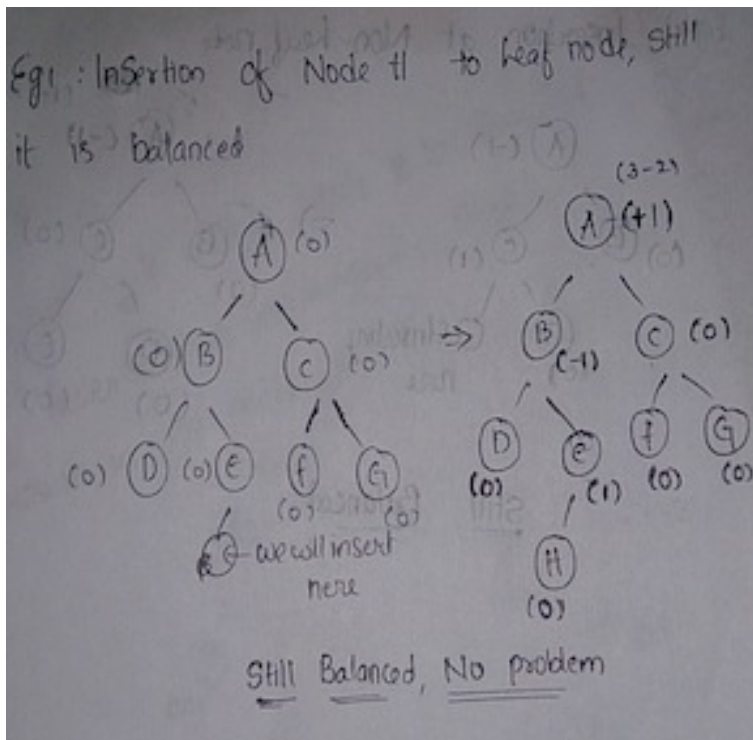 Eg1 : Insertion of Node H to Leaf node, Still
it is balanced
A (0)
(0) B C (0)
(0) D (0) e f (0) G (0)
we will insert
here
→
(3-2)
A (+1)
B (-1) C (0)
D (0) e (1) f (0) G (0)
H
(0)
Still Balanced, No problem